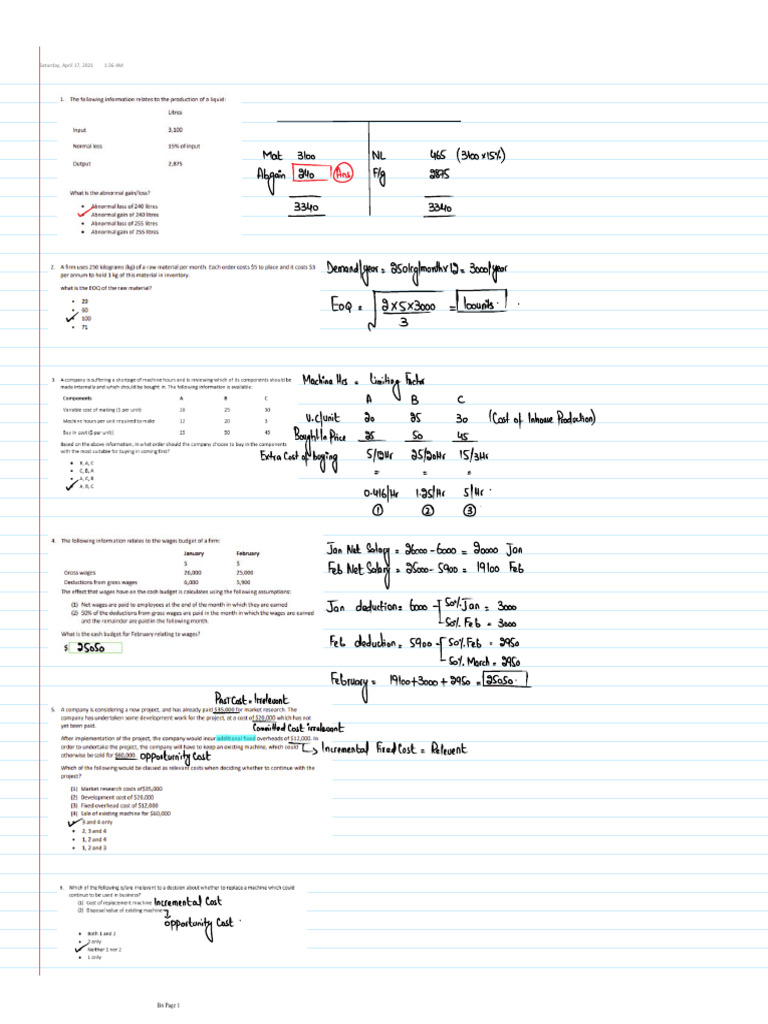 Saturday, April 17, 2021 1:36 AM
1. The following information relates to the production of a liquid:
Litres
Input 3,100
Normal loss 15% of input
Output 2,875
What is the abnormal gain/loss?
• Abnormal loss of 240 litres
• Abnormal gain of 240 litres
• Abnormal loss of 255 litres
• Abnormal gain of 255 litres
Mat 3100 NL 465 (3100 x 15%)
Abgain 240 Ans F/g 2875
3340 3340
2. A firm uses 250 kilograms (kg) of a raw material per month. Each order costs $5 to place and it costs $3
per annum to hold 1 kg of this material in inventory.
what is the EOQ of the raw material?
• 29
• 60
• 100
• 71
Demand/year = 250kg/month x 12 = 3000/year
EOQ = √ 2 x 5 x 3000 = 100units.
3
3. A company is suffering a shortage of machine hours and is reviewing which of its components should be
made internally and which should be bought in. The following information is available:
Components A B C
Variable cost of making ($ per unit) 20 25 30
Machine hours per unit required to make 12 20 3
Buy in cost ($ per unit) 25 50 45
Based on the above information, in what order should the company choose to buy in the components
with the most suitable for buying in coming first?
• B, A, C
• C, B, A
• A, C, B
• A, B, C
Machine Hrs = Limiting Factor
A B C
V.C/unit 20 25 30 (Cost of Inhouse Production)
Bought In Price 25 50 45
Extra Cost of buying 5/12Hr 25/20Hr 15/3Hr
= = =
0.416/Hr 1.25/Hr 5/Hr
① ② ③
4. The following information relates to the wages budget of a firm:
January February
$ $
Gross wages 26,000 25,000
Deductions from gross wages 6,000 5,900
The effect that wages have on the cash budget is calculated using the following assumptions:
(1) Net wages are paid to employees at the end of the month in which they are earned
(2) 50% of the deductions from gross wages are paid in the month in which the wages are earned
and the remainder are paid in the following month.
What is the cash budget for February relating to wages?
$ 25050
Jan Net Salary = 26000 - 6000 = 20000 Jan
Feb Net Salary = 25000 - 5900 = 19100 Feb
Jan deduction = 6000 50% Jan = 3000
50% Feb = 3000
Feb deduction = 5900 50% Feb = 2950
50% March = 2950
February = 19100 + 3000 + 2950 = 25050.
Past Cost = Irrelevant
5. A company is considering a new project, and has already paid $35,000 for market research. The
company has undertaken some development work for the project, at a cost of $20,000 which has not
yet been paid.
Committed Cost irrelevant
After implementation of the project, the company would incur additional fixed overheads of $12,000. In
order to undertake the project, the company will have to keep an existing machine, which could
otherwise be sold for $60,000. Opportunity Cost
Incremental Fixed Cost = Relevent
Which of the following would be classed as relevant costs when deciding whether to continue with the
project?
(1) Market research costs of $35,000
(2) Development cost of $20,000
(3) Fixed overhead cost of $12,000
(4) Sale of existing machine for $60,000
• 3 and 4 only
• 2, 3 and 4
• 1, 2 and 4
• 1, 2 and 3
6. Which of the following is/are irrelevant to a decision about whether to replace a machine which could
continue to be used in business?
(1) Cost of replacement machine Incremental Cost
(2) Disposal value of existing machine
opportunity Cost.
• Both 1 and 2
• 2 only
• Neither 1 nor 2
• 1 only
Bs Page 1